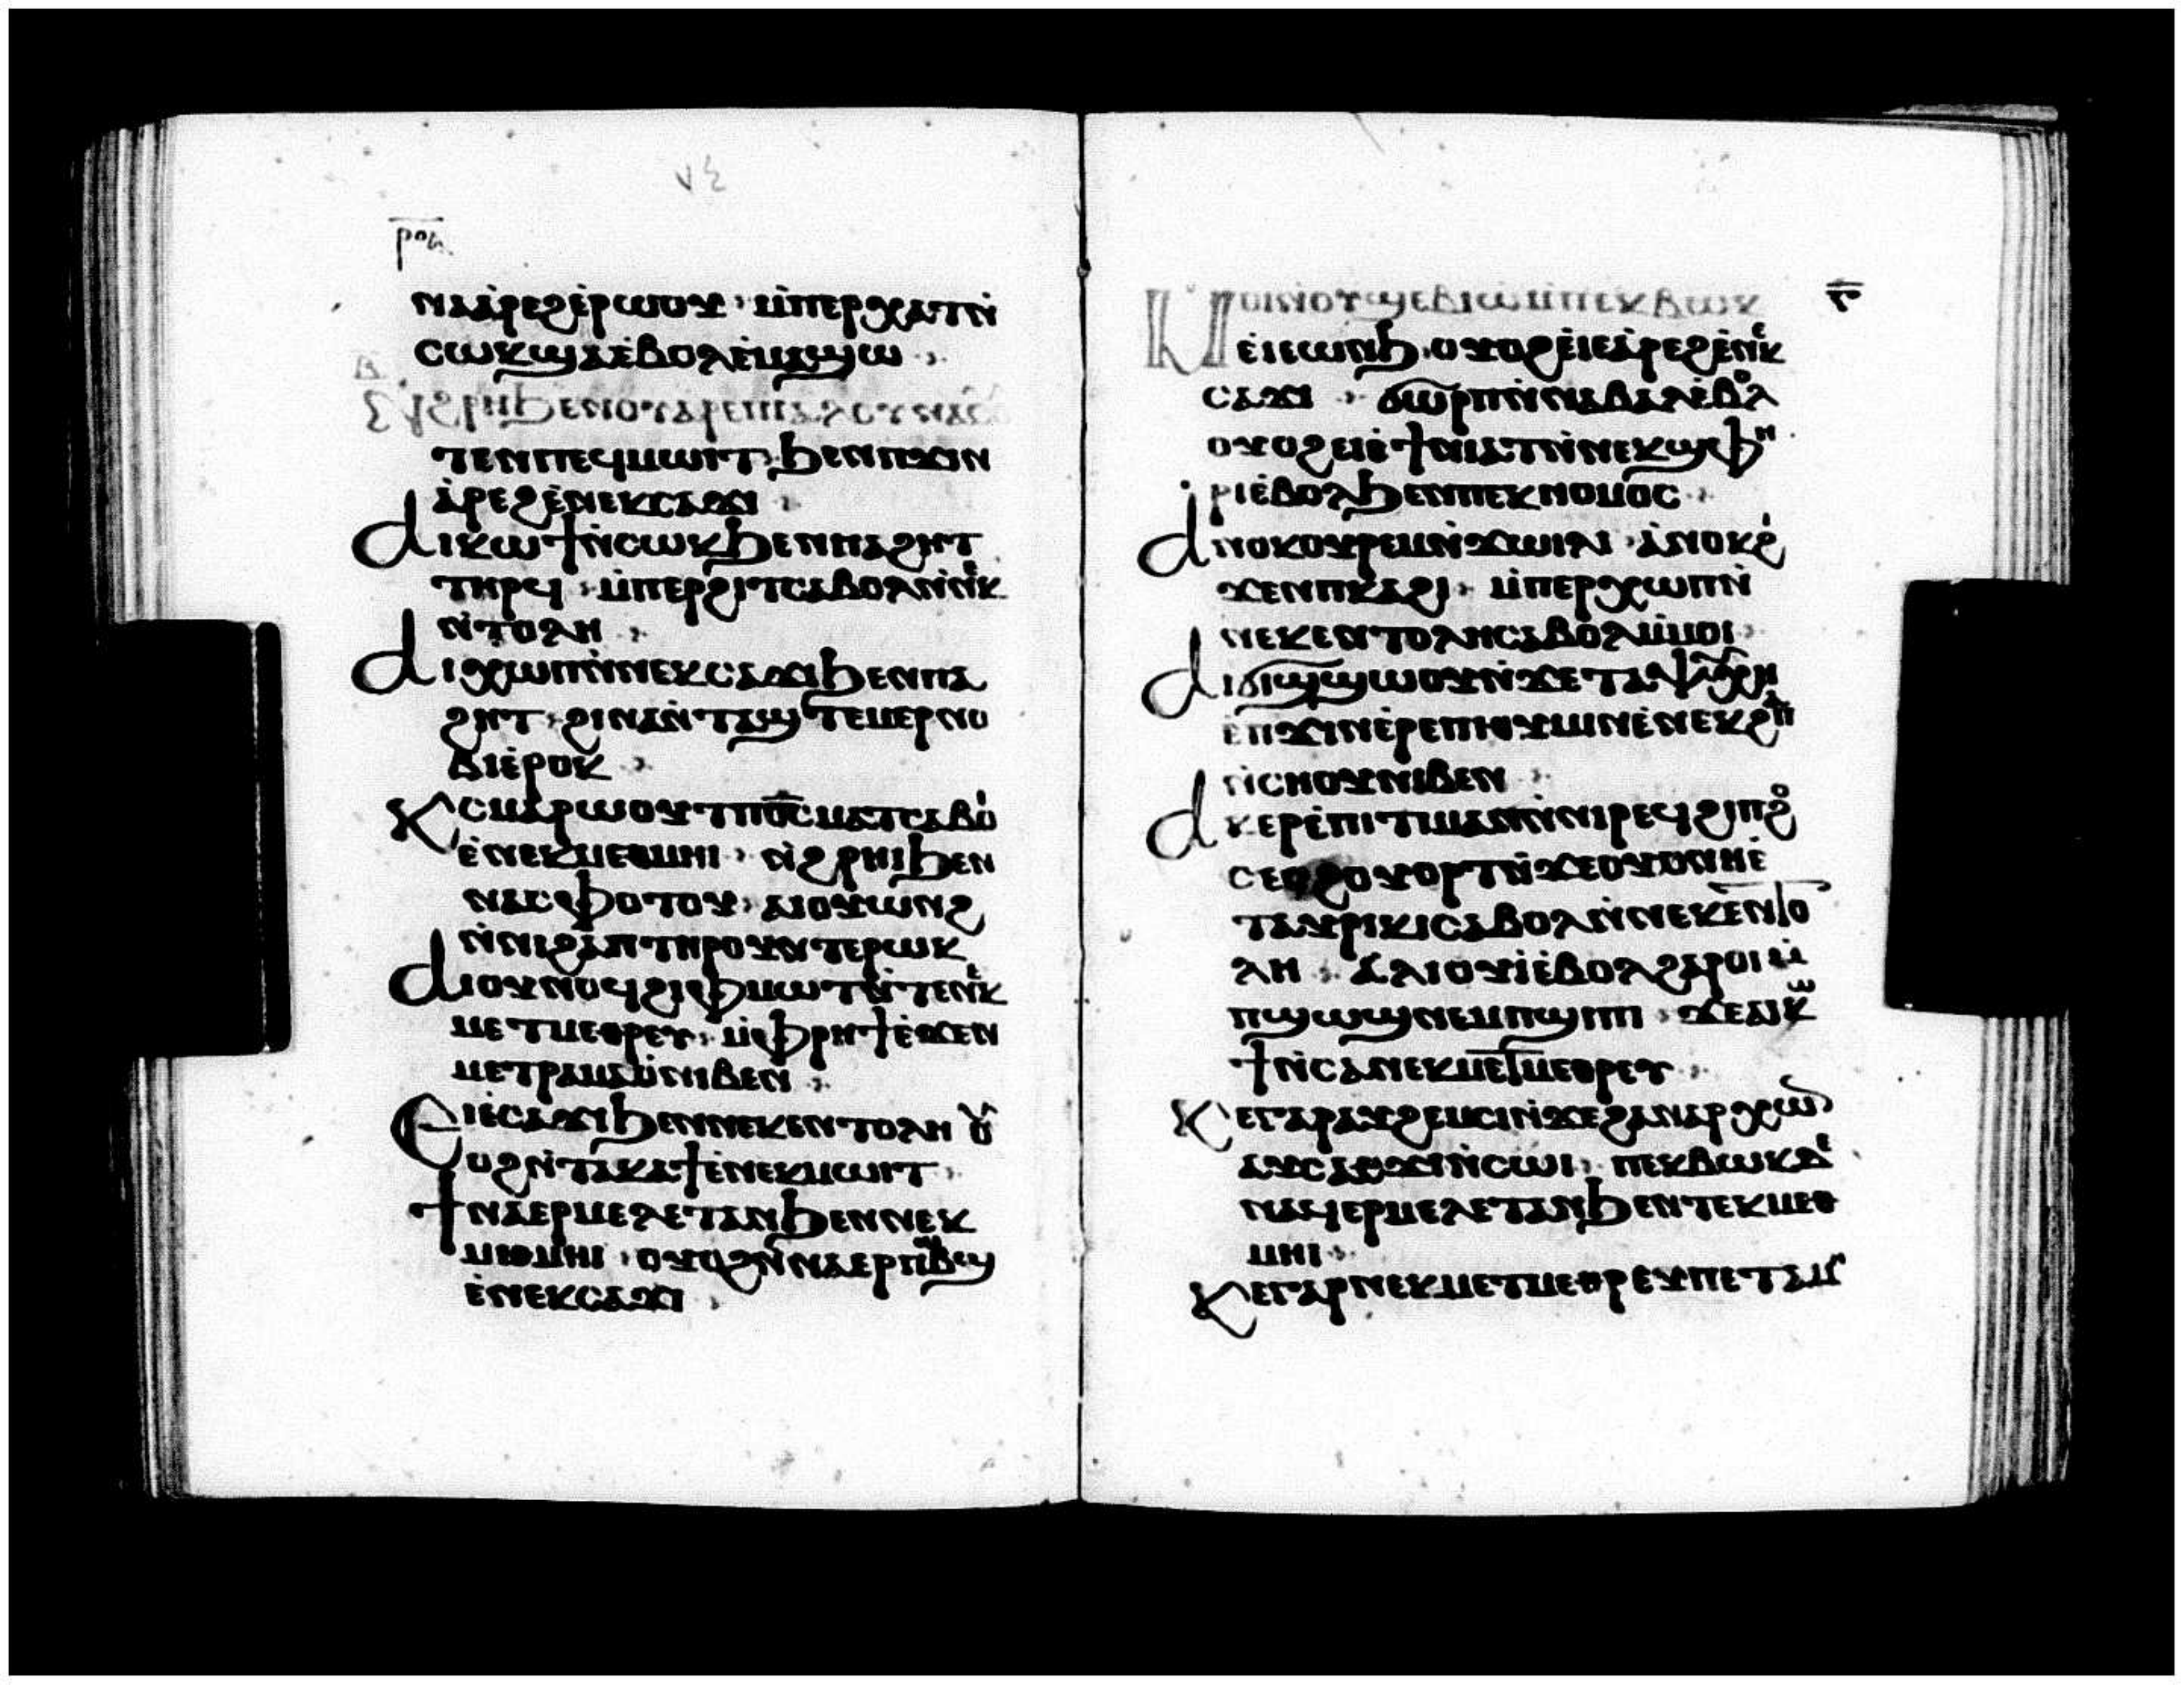 ⲛⲁⲁ̀ⲣⲉϩⲉ̀ⲣⲱⲟⲩ ⲙ̀ⲡⲉⲣⲭⲁⲧⲛ̀
ⲥⲱⲕϣⲁⲉ̀ⲃⲟⲗⲉ̀ⲙⲁϣⲱ
ⲧⲉⲛⲡⲉϥⲙⲱⲓⲧ ϧⲉⲛⲡϫⲓⲛ
ⲁ̀ⲣⲉϩⲉ̀ⲛⲉⲕⲥⲁϫⲓ
ⲁⲓⲕⲱϯⲛ̀ⲥⲱⲕϧⲉⲛⲡⲁϩⲏⲧ
ⲧⲏⲣϥ ⲙ̀ⲡⲉⲣϩⲓⲧⲥⲁⲃⲟⲗⲛ̀ⲛⲉⲕ
ⲛ̀ⲧⲟⲗⲏ
ⲁⲓⲭⲱⲡⲛ̀ⲛⲉⲕⲥⲁϫⲓϧⲉⲛⲡⲁ
ϩⲏⲧ ϩⲓⲛⲁⲛ̀ⲧⲁϣⲧⲉⲙⲉⲣⲛⲟ
ⲃⲓⲉ̀ⲣⲟⲕ
ⲕⲥⲙⲁⲣⲱⲟⲩⲧⲡⲟ̅ⲥ̅ⲙⲁⲧⲥⲁⲃⲟⲓ
ⲉ̀ⲛⲉⲕⲙⲉⲑⲙⲏⲓ ⲛ̀ϩⲣⲏⲓϧⲉⲛ
ⲛⲁⲥⲫⲟⲧⲟⲩ ⲁⲓⲟⲩⲱⲛϩ
ⲛ̀ⲛⲓϩⲁⲡⲧⲏⲣⲟⲩⲛⲧⲉⲣⲱⲕ
ⲁⲓⲟⲩⲛⲟϥϩⲓⲫⲙⲱⲓⲧⲛ̀ⲧⲉⲛⲉⲕ
ⲙⲉⲧⲙⲉⲑⲣⲉⲩ ⲙ̀ⲫⲣⲏϯⲉ̀ϫⲉⲛ
ⲙⲉⲧⲣⲁⲙⲁⲟ̀ⲛⲓⲃⲉⲛ
ⲉⲓⲉ̀ⲥⲁϫⲓϧⲉⲛⲛⲉⲕⲉⲛⲧⲟⲗⲏ ⲟⲩ
ⲟϩⲛ̀ⲧⲁⲕⲁϯⲉ̀ⲛⲉⲕⲙⲱⲓⲧ
ϯⲛⲁⲉⲣⲙⲉⲗⲉⲧⲁⲛϧⲉⲛⲛⲉⲕ
ⲙⲑⲙⲏⲓ ⲟⲩⲟϩⲛ̀ⲛⲁⲉⲣⲡⲱⲃϣ
ⲉ̀ⲛⲉⲕⲥⲁϫⲓ
ⲙⲟⲓⲛⲟⲩϣⲉⲃⲓⲱⲙ̀ⲡⲉⲕⲃⲱⲕ
ⲉⲓⲉⲱⲛϧ ⲟⲩⲟϩⲉⲓⲉⲁ̀ⲣⲉϩⲉ̀ⲛⲉⲕ
ⲥⲁϫⲓ ϭⲱⲣⲡⲛ̀ⲛⲁⲃⲁⲗⲉ̀ⲃⲟⲗ
ⲟⲩⲟϩⲉⲓⲉ̀ϯⲛⲓⲁⲧⲛ̀ⲛⲉⲕϣⲫⲏ
ⲣⲓⲉ̀ⲃⲟⲗϧⲉⲛⲡⲉⲕⲛⲟⲙⲟⲥ
ⲁⲛⲟⲕⲟⲩⲣⲉⲙⲛ̀ϫⲱⲓⲗⲓ ⲁ̀ⲛⲟⲕϩⲓ
ϫⲉⲛⲡⲕⲁϩⲓ ⲙ̀ⲡⲉⲣⲭⲱⲡⲛ̀
ⲛⲉⲕⲉⲛⲧⲟⲗⲏⲥⲁⲃⲟⲗⲙ̀ⲙⲟⲓ
ⲁⲓϭⲓϣϣⲱⲟⲩⲛ̀ϫⲉⲧⲁⲯⲩⲭⲏ
ⲉ̀ⲡϫⲓⲛⲉ̀ⲣⲉⲡⲓⲑⲩⲙⲓⲛⲉ̀ⲛⲉⲕϩⲁⲡ
ⲛ̀ⲥⲏⲟⲩⲛⲓⲃⲉⲛ
ⲁⲕⲉⲣⲉ̀ⲡⲓⲧⲓⲙⲁⲛⲛ̀ⲛⲓⲣⲉϥϩⲓⲡϩⲟ
ⲥⲉⲥϩⲟⲩⲟⲣⲧⲛ̀ϫⲉⲟⲩⲟⲛⲏⲉ̀
ⲧⲁⲩⲣⲓⲕⲓⲥⲁⲃⲟⲗⲛ̀ⲛⲉⲕⲉⲛⲧⲟ
ⲗⲏ ⲁⲗⲓⲟⲩⲓⲉ̀ⲃⲟⲗϩⲁⲣⲟⲓ ⲙ̀
ⲡϣⲱϣⲛⲉⲙⲡϣⲓⲡⲓ ϫⲉⲁⲓⲕⲱ
ϯⲛ̀ⲥⲁⲛⲉⲕⲙⲉⲧⲙⲉⲑⲣⲉⲩ
ⲕⲉⲅⲁⲣⲁⲩϩⲉⲙⲥⲓⲛ̀ϫⲉϩⲁⲛⲁⲣⲭⲱⲛ
ⲁⲩⲥⲁϫⲓⲛ̀ⲥⲱⲓ ⲡⲉⲕⲃⲱⲕⲇⲉ
ⲛⲁϥⲉⲣⲙⲉⲗⲉⲧⲁⲛϧⲉⲛⲧⲉⲕⲙⲉⲑ
ⲙⲏⲓ
ⲕⲉⲅⲁⲣⲛⲉⲕⲙⲉⲧⲙⲉⲑⲣⲉⲩⲡⲉⲧⲁⲙ